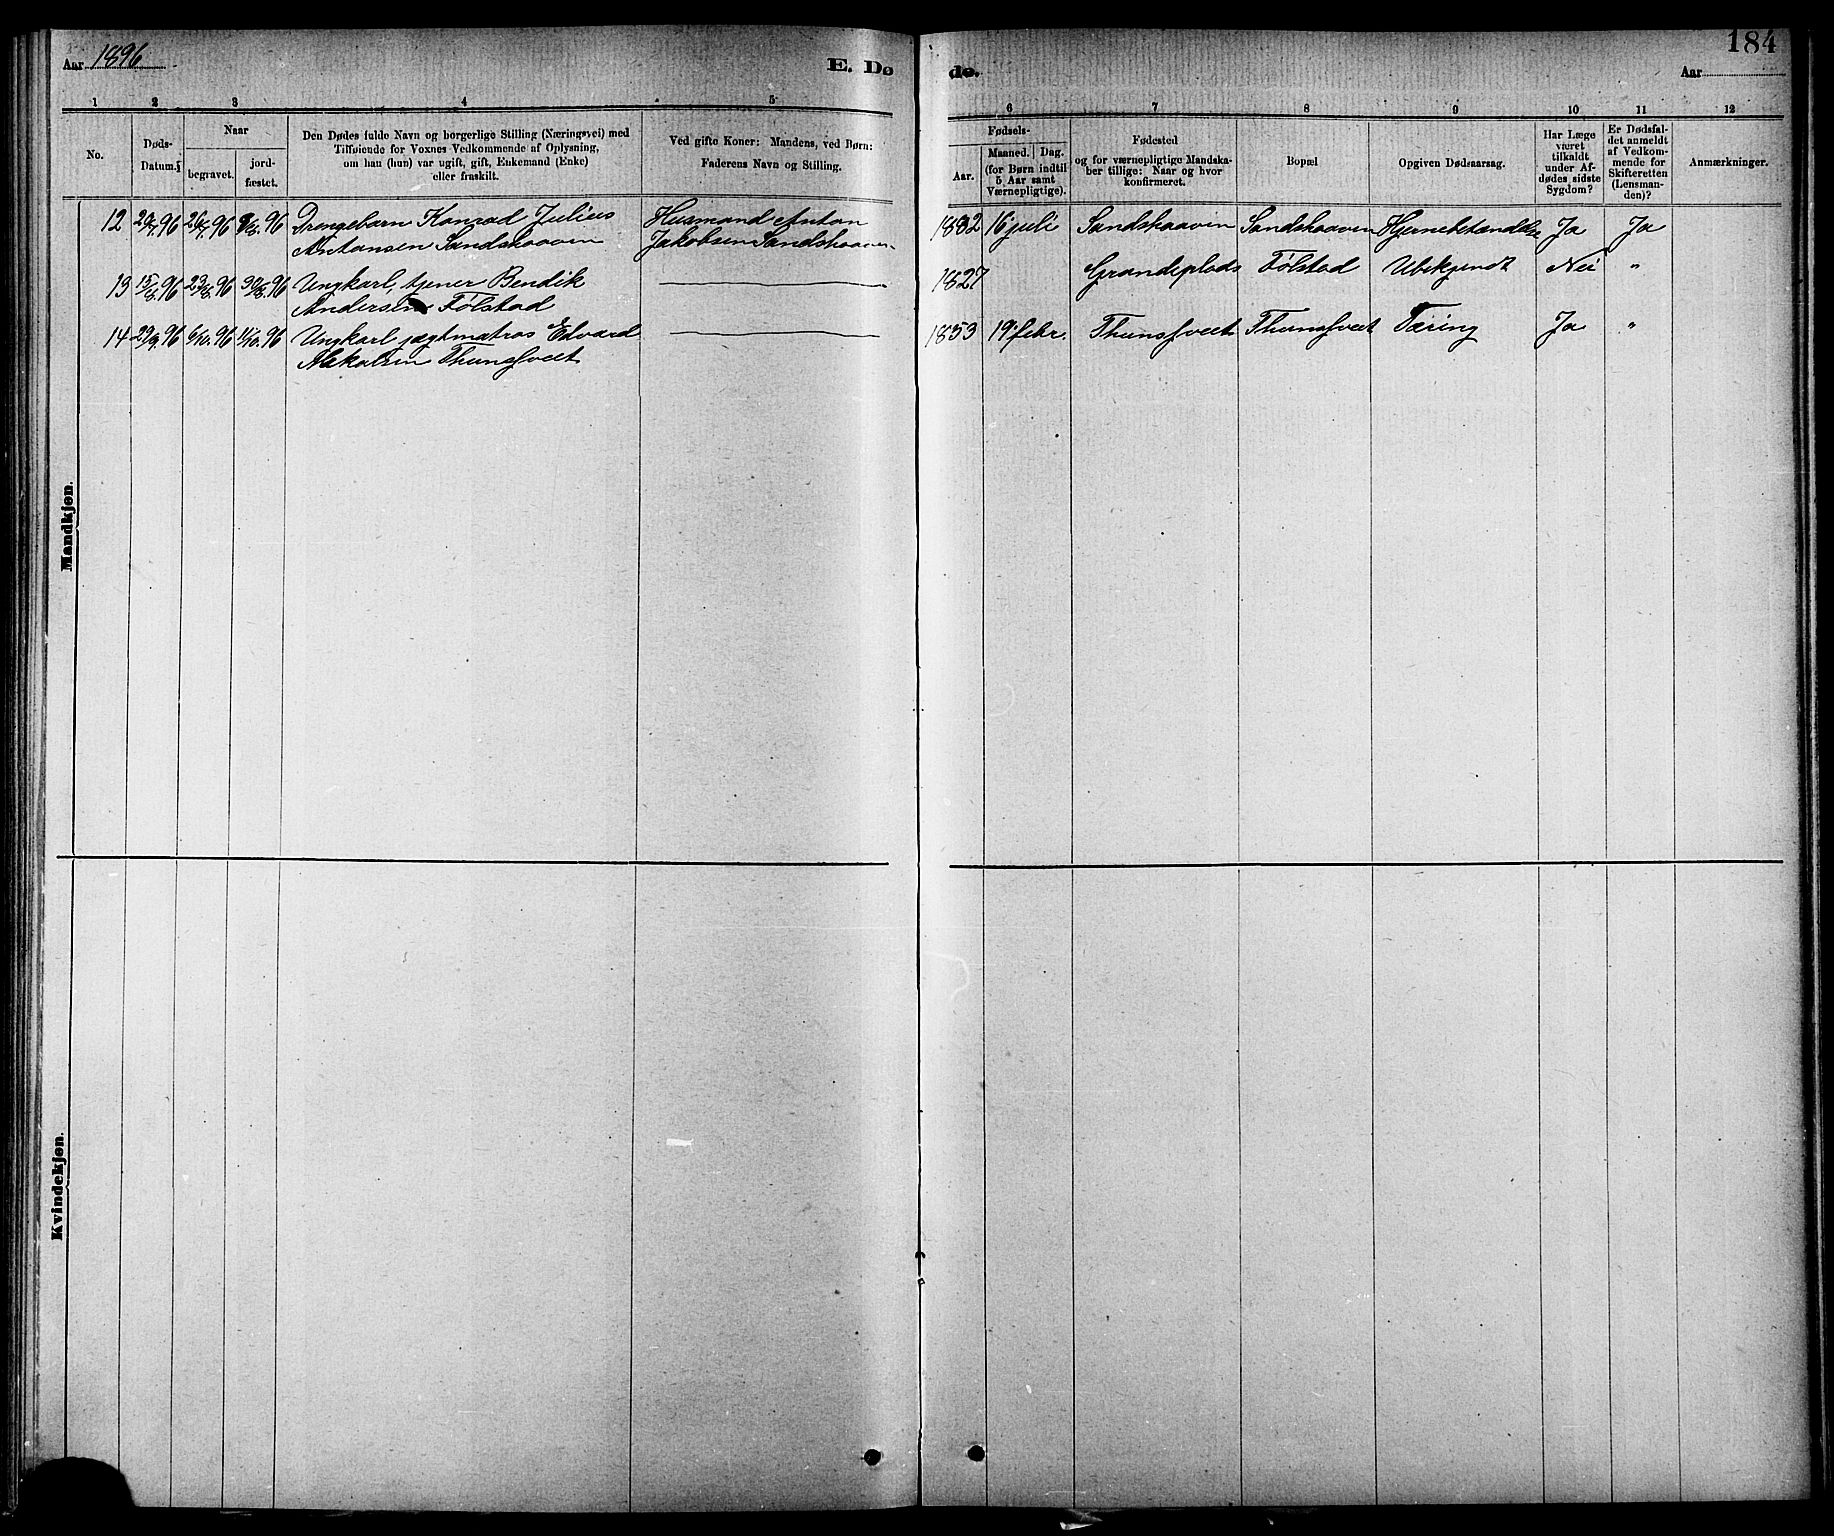 Aar 1896
E. Dø
de.
Aar
184
1 2 3 4 5
6 7 8 9 10 11 12
No.
Døds-
Datum.
Naar
begravet.
jord-
fæstet.
Den Dødes fulde Navn og borgerlige Stilling (Næringsvei) med
Tilføiende for Voxnes Vedkommende af Oplysning,
om han (hun) var ugift, gift, Enkemand (Enke)
eller fraskilt.
Ved gifte Koner: Mandens, ved Børn:
Faderens Navn og Stilling.
Fødsels-
Aar.
Maaned. Dag.
(for Børn indtil
5 Aar samt
Værnepligtige).
Fødested
og for værnepligtige Mandska-
ber tillige: Naar og hvor
konfirmeret.
Bopæl
Opgiven Dødsaarsag.
Har Læge
været
tilkaldt
under Af-
dødes sidste
Sygdom?
Er Dødsfal-
det anmeldt
af Vedkom-
mende for
Skifteretten
(Lensman-
den)?
Anmærkninger.
Mandkjøn.
12 20/7 96 26/7 96 9/8 96 Drengebarn Konrad Julius Husmand Anton 16 juli Sandshaavin Sandshaavin Hjernebetændelse Ja Ja
Antonsen Sandshaavin Jakobsen Sandshaavin
13 15/8 96 23/8 96 30/8 96 Ungkarl, tjener Bendik 1827 Følstad Ubekjendt Nei "
Andersen Følstad
14 29/9 96 6/10 96 11/10 96 Ungkarl jægtmatros Edvard 1853 19 febr. Thunsfveet Thunsfveet Tæring Ja "
Thunsfveet
Kvindekjøn.